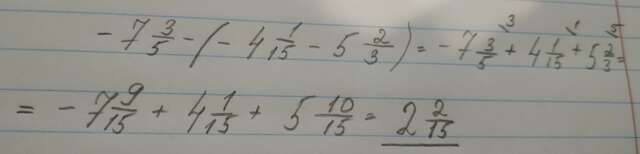 - 7 3/5 - (- 4 1/15 - 5 2/3) = - 7 3/5 + 4 1/15 + 5 2/3 =
= - 7 9/15 + 4 1/15 + 5 10/15 = 2 2/15